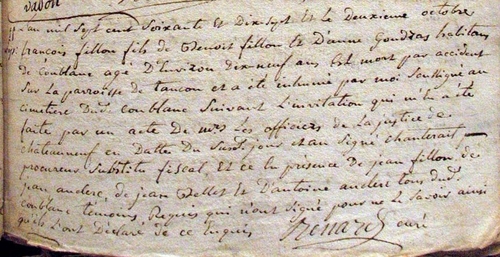 davon
L'an mil Sept cent Soixante et Dix Sept et le deuxieme octobre
françois fillon fils de Benoit fillon et D'anne gondras habitans
de Coublanc age D'Environ dix neuf ans Est mort par accident
Sur La parroisse de tancon et a été inhumé par moi Soussigné au
cimetiere Dud. Coublanc Suivant L'invitation qui m'En a été
faite par un acte de mrs Les officiers de La justice de
chateauneuf en Datte Du jour et an Signé, chanterait
procureur Substitu fiscal, Et ce En presence de jean fillon, de
jean auclerc, de jean Vellet et D'antoine auclerc tous dud.
Coublanc temoins, Requis qui n'ont Signé pour ne Le Savoir ainsi
qu'ils L'ont Declaré de ce Enquis Renard curé